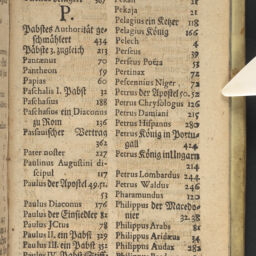 P.
Pabstes Authorität ge-
schmählert 434
Päbste 3. zugleich 213
Pantænus 70
Pantheon 59
Papias 60
Paschalis I. Pabst 32
Paschasius 188
Paschasius ein Diaconus
zu Rom 136
Passauischer Vertrag
362
Pater noster 227
Paulinus Augustini di-
scipul 117
Paulus der Apostel 49.51.
53
Paulus Diaconus 176
Paulus der Einsiedler 81
Paulus JCtus 78
Paulus II. ein Pabst 329
Paulus III. ein Pabst 351
Paulus IV.
Pekaja 21
Pelagius ein Ketzer 118
Pelagius König 166
Pelech 4
Perseus 39
Persius Poëta 53
Pertinax 72
Pescennius Niger 72
Petrus der Apostel 50. 52
Petrus Chrysologus 126
Petrus Damiani 215
Petrus Hispanus 280
Petrus König in Portu-
gall 424
Petrus König in Ungarn
214
Petrus Lombardus 244
Petrus Waldus 246
Pharamundus 120
Philippus der Macedo-
nier 32.38
Philippus Arabs 81
Philippus Aridæus 34
Philippus Audax 282